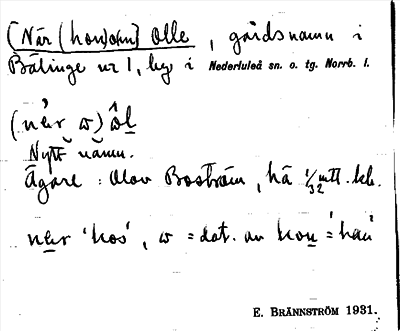 [När (honom) Olle, gårdsnamn i
Bälinge nr 1, by i Nederluleå sn. o. tg. Norrb. l.
Nytt namn.
Ägare: Olov Boström, hä 1/32 mtl. skr.
'hos', = dat. av
E. BRÄNNSTRÖM 1931.